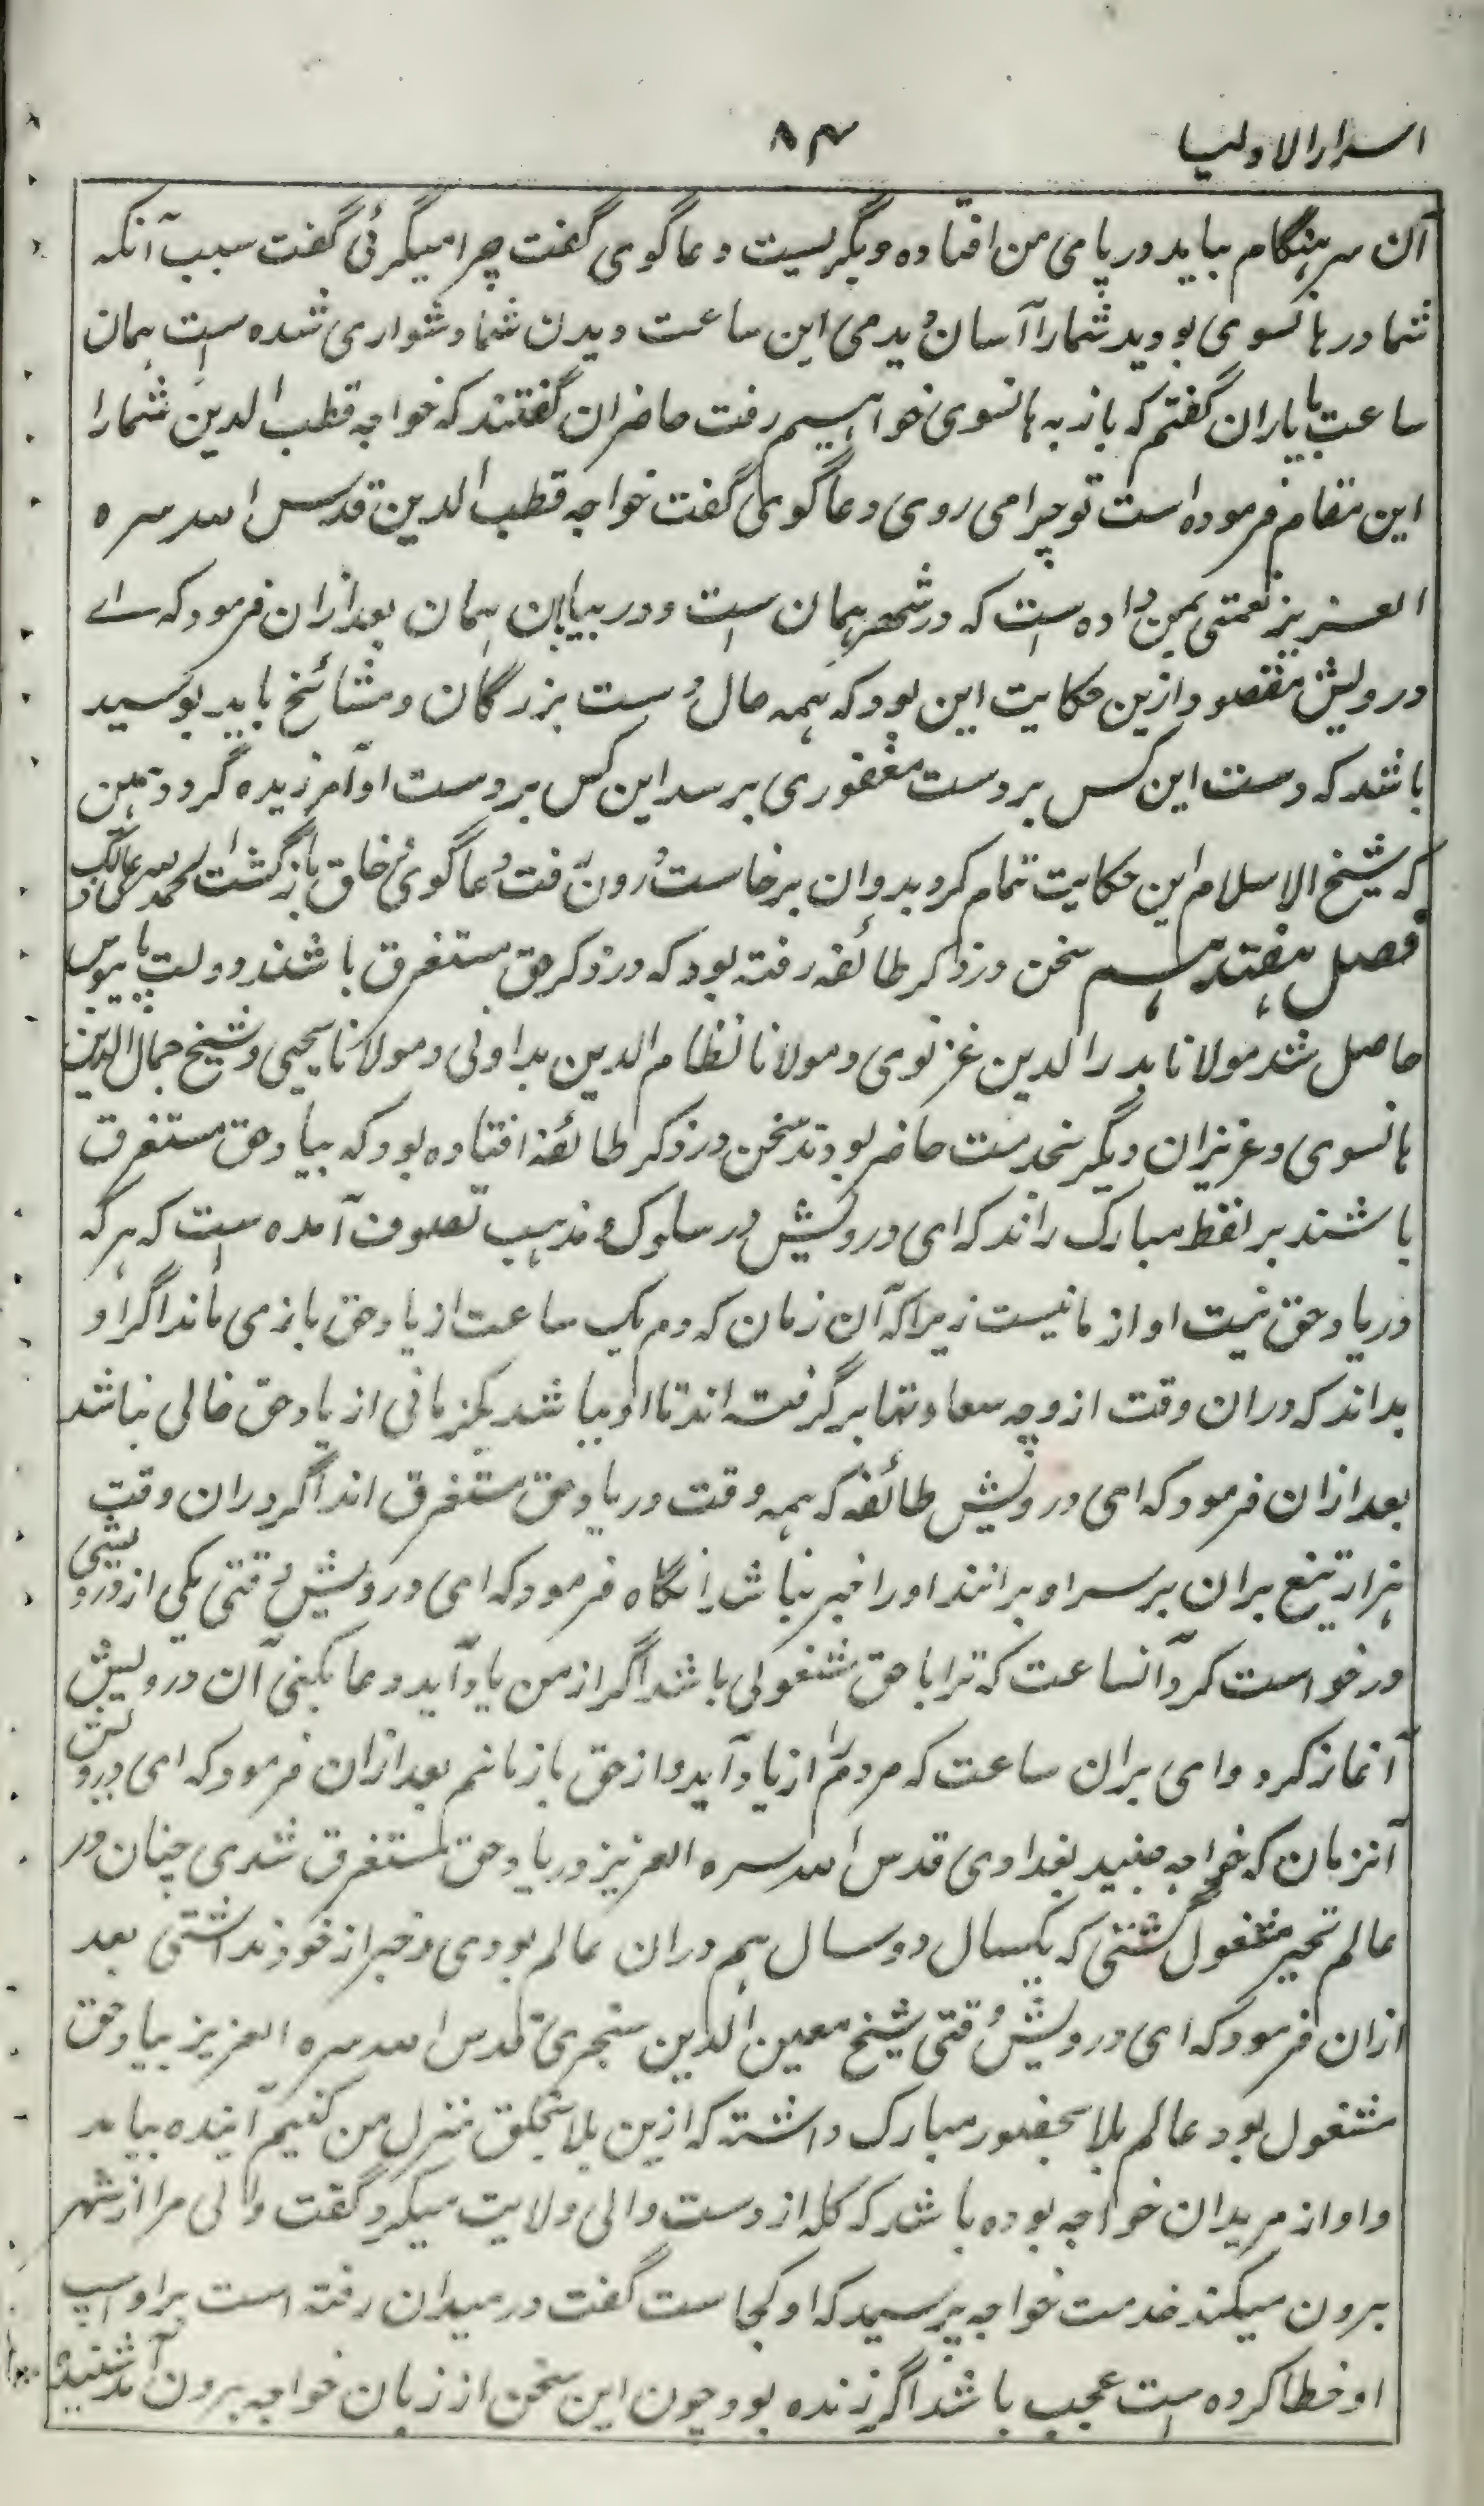 اسرار الاولیا
۸۴
آن سرہنگام بیاید در پای من افتاده و بگریست دعاگوی گفت چرا میگرئی گفت سبب آنکه
شما در ہانسوی بودید شمارا آسان دیدمی این ساعت دیدن شما دشواری شده است ہمان
ساعت بایاران گفتم که باز به ہانسوی خواہیم رفت حاضران گفتند که خواجه قطب الدین شمارا
این مقام فرموده است تو چرا می روی دعاگوی گفت خواجه قطب الدین قدس اللہ سره
العزیز نعمتی بمن داده است که در شهر ہمان است و در بیابان ہمان بعد ازان فرمود که اے
درویش مقصود ازین حکایت این بود که ہمه حال دست بزرگان و مشائخ باید بوسید
باشد که دست این کس بر دست مغفوری برسد این کس بر دست او آمرزیده گردد ہمین
که شیخ الاسلام این حکایت تمام کرد بدوان برخاست درون رفت دعاگوی و خلق بازگشت الحمد للہ علی ذالک
فصل ہفتدہم سخن در ذکر طائفه رفته بود که در ذکر حق مستغرق باشند دولت پایبوس
حاصل شد مولانا بدر الدین غزنوی و مولانا نظام الدین بداونی و مولانا یحیی و شیخ جمال الدین
ہانسوی و عزیزان دیگر بخدمت حاضر بودند سخن در ذکر طائفه افتاده بود که بیاد حق مستغرق
باشند بر لفظ مبارک راند که ای درویش در سلوک و مذہب تصوف آمده است که ہر که
در یاد حق نیست او از ما نیست زیرا که آن زمان که دم یک ساعت از یاد حق باز می ماند اگر او
بداند که دران وقت از وچه سعادتہا برگرفته اند تا او بباشد یکزمانی از یاد حق خالی نباشد
بعد ازان فرمود که ای درویش طائفه که ہمه وقت در یاد حق مستغرق اند اگر دران وقت
ہزار تیغ بران بر سر او برانند اورا خبر نباشد آنگاه فرمود که ای درویش وقتی یکی از درویشی
درخواست کرد آنساعت که ترا با حق مشغولی باشد اگر از من یاد آید دعا بکنی آن درویش
آغاز کرد وای بران ساعت که مردم از یاد آید و از حق باز مانم بعد ازان فرمود که ای درویش
آنزمان که خواجه جنید بغدادی قدس اللہ سره العزیز در یاد حق مستغرق شدی چنان در
عالم تحیر مشغول گشتی که یکسال دو سال ہم دران عالم بودی و خبر از خود نداشتی بعد
ازان فرمود که ای درویش وقتی شیخ معین الدین سنجری قدس اللہ سره العزیز بیاد حق
مشغول بود عالم بلا بحضور مبارک داشته که ازین بلا بخلق منزل من کنیم آینده بیامد
و او از مریدان خواجه بوده باشد که گله از دست والی ولایت میکرد گفت والی مرا از شهر
برون میکند خدمت خواجه پرسید که او کجاست گفت در میدان رفته است بر او اسپ
او خطا کرده است عجب باشد اگر زنده بود چون این سخن از زبان خواجه برون آمد شنیده